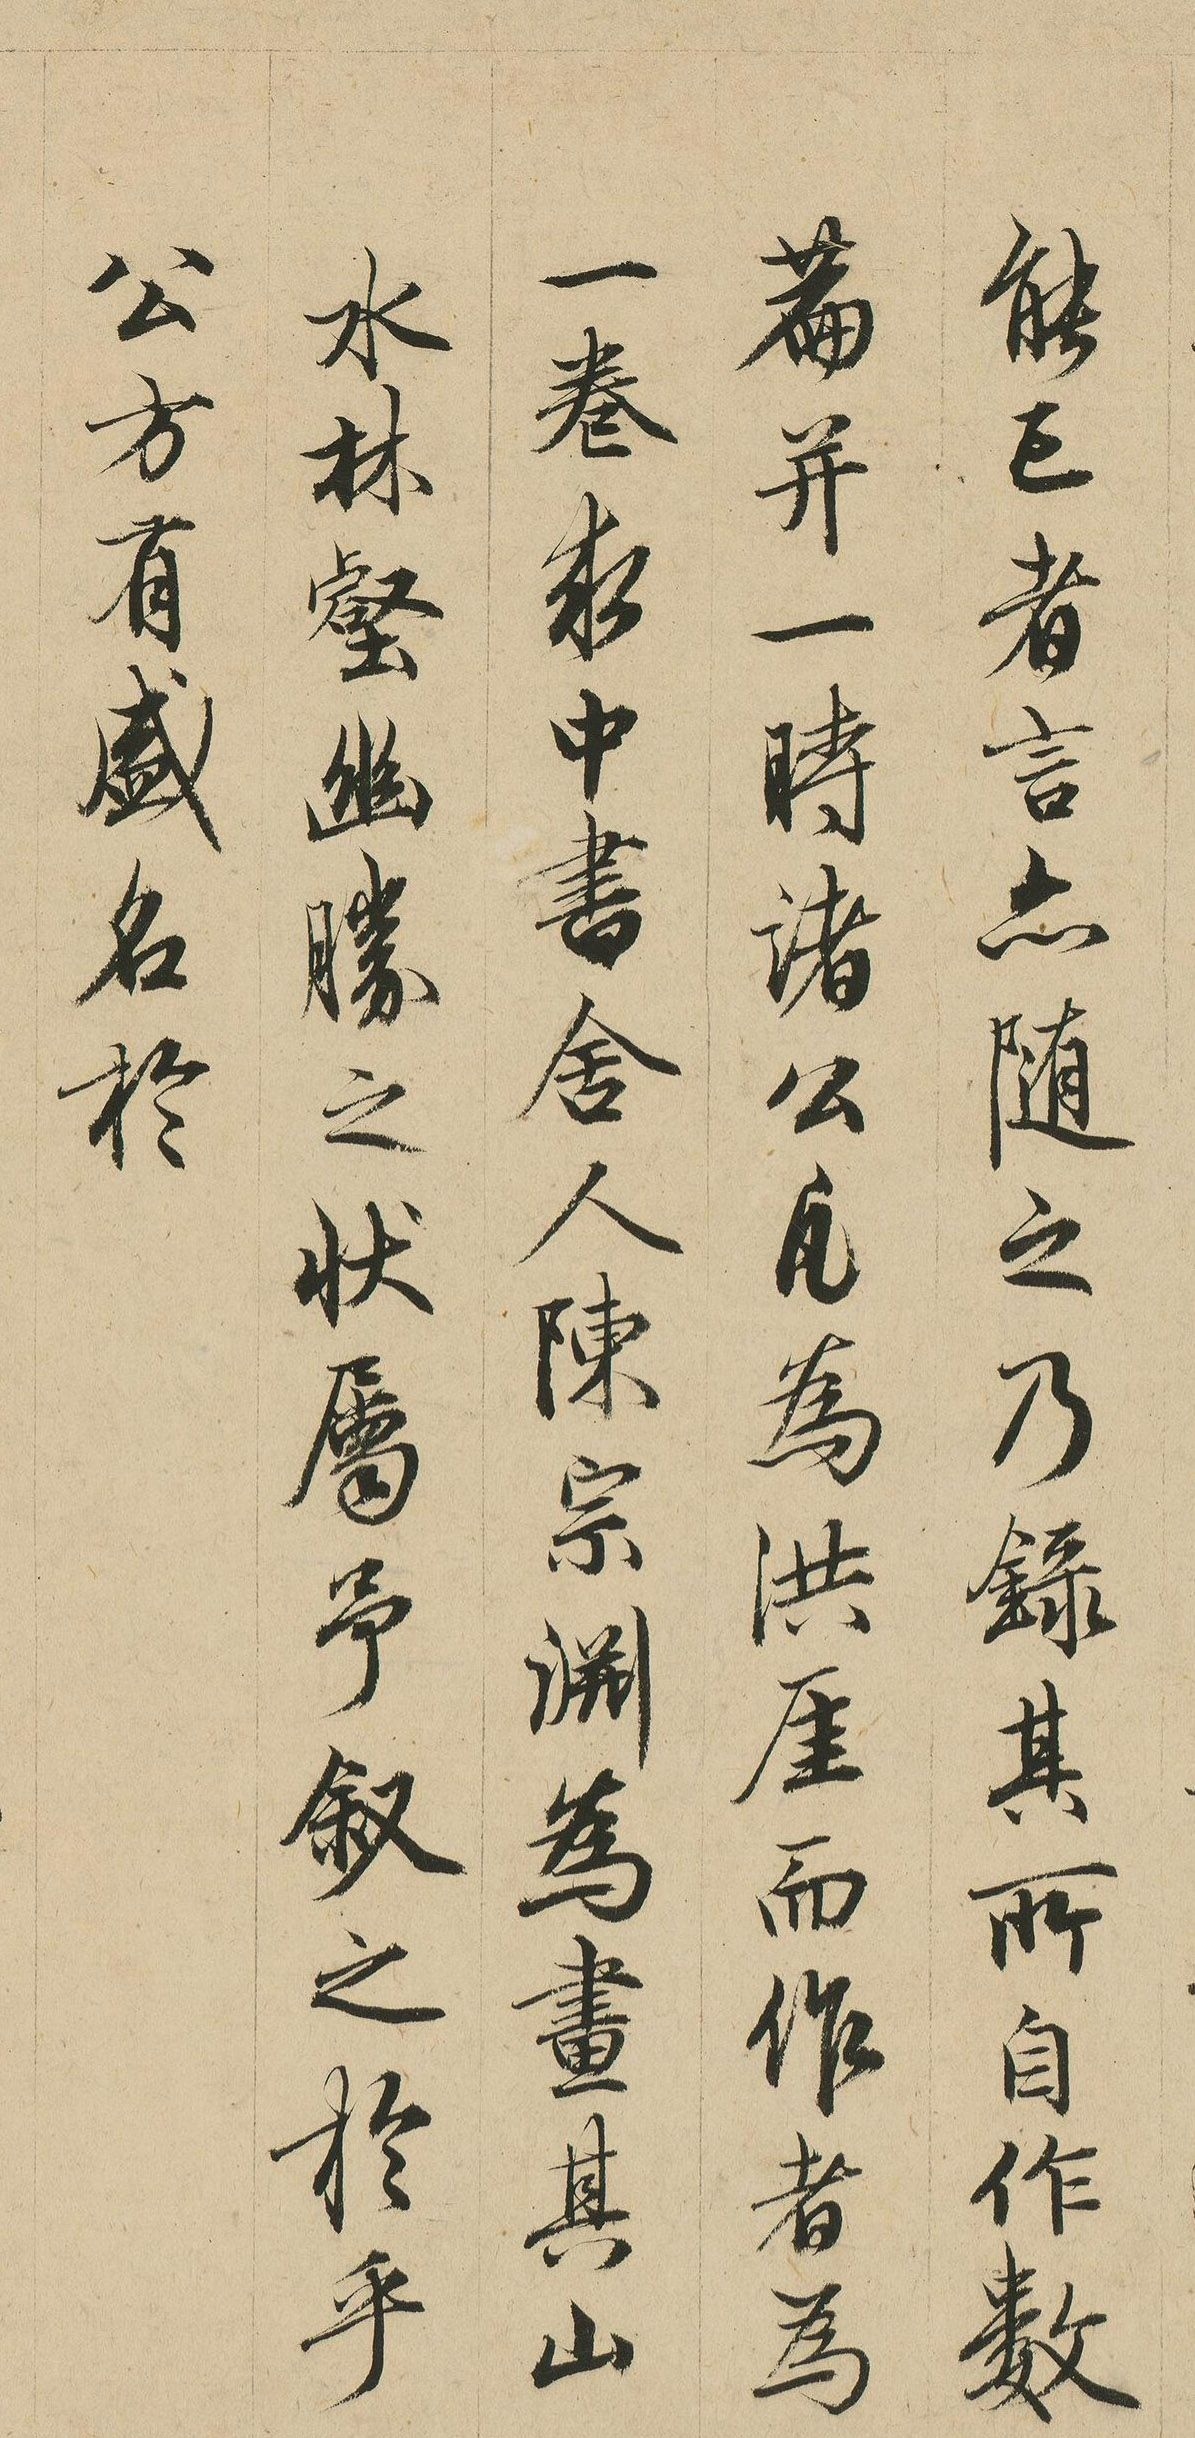 能已者言亦随之乃録其所自作數
篇并一時諸公凡為洪厓而作者為
一卷求中書舍人陳宗淵為畫其山
水林壑幽勝之状屬予叙之於乎
公方有盛名於